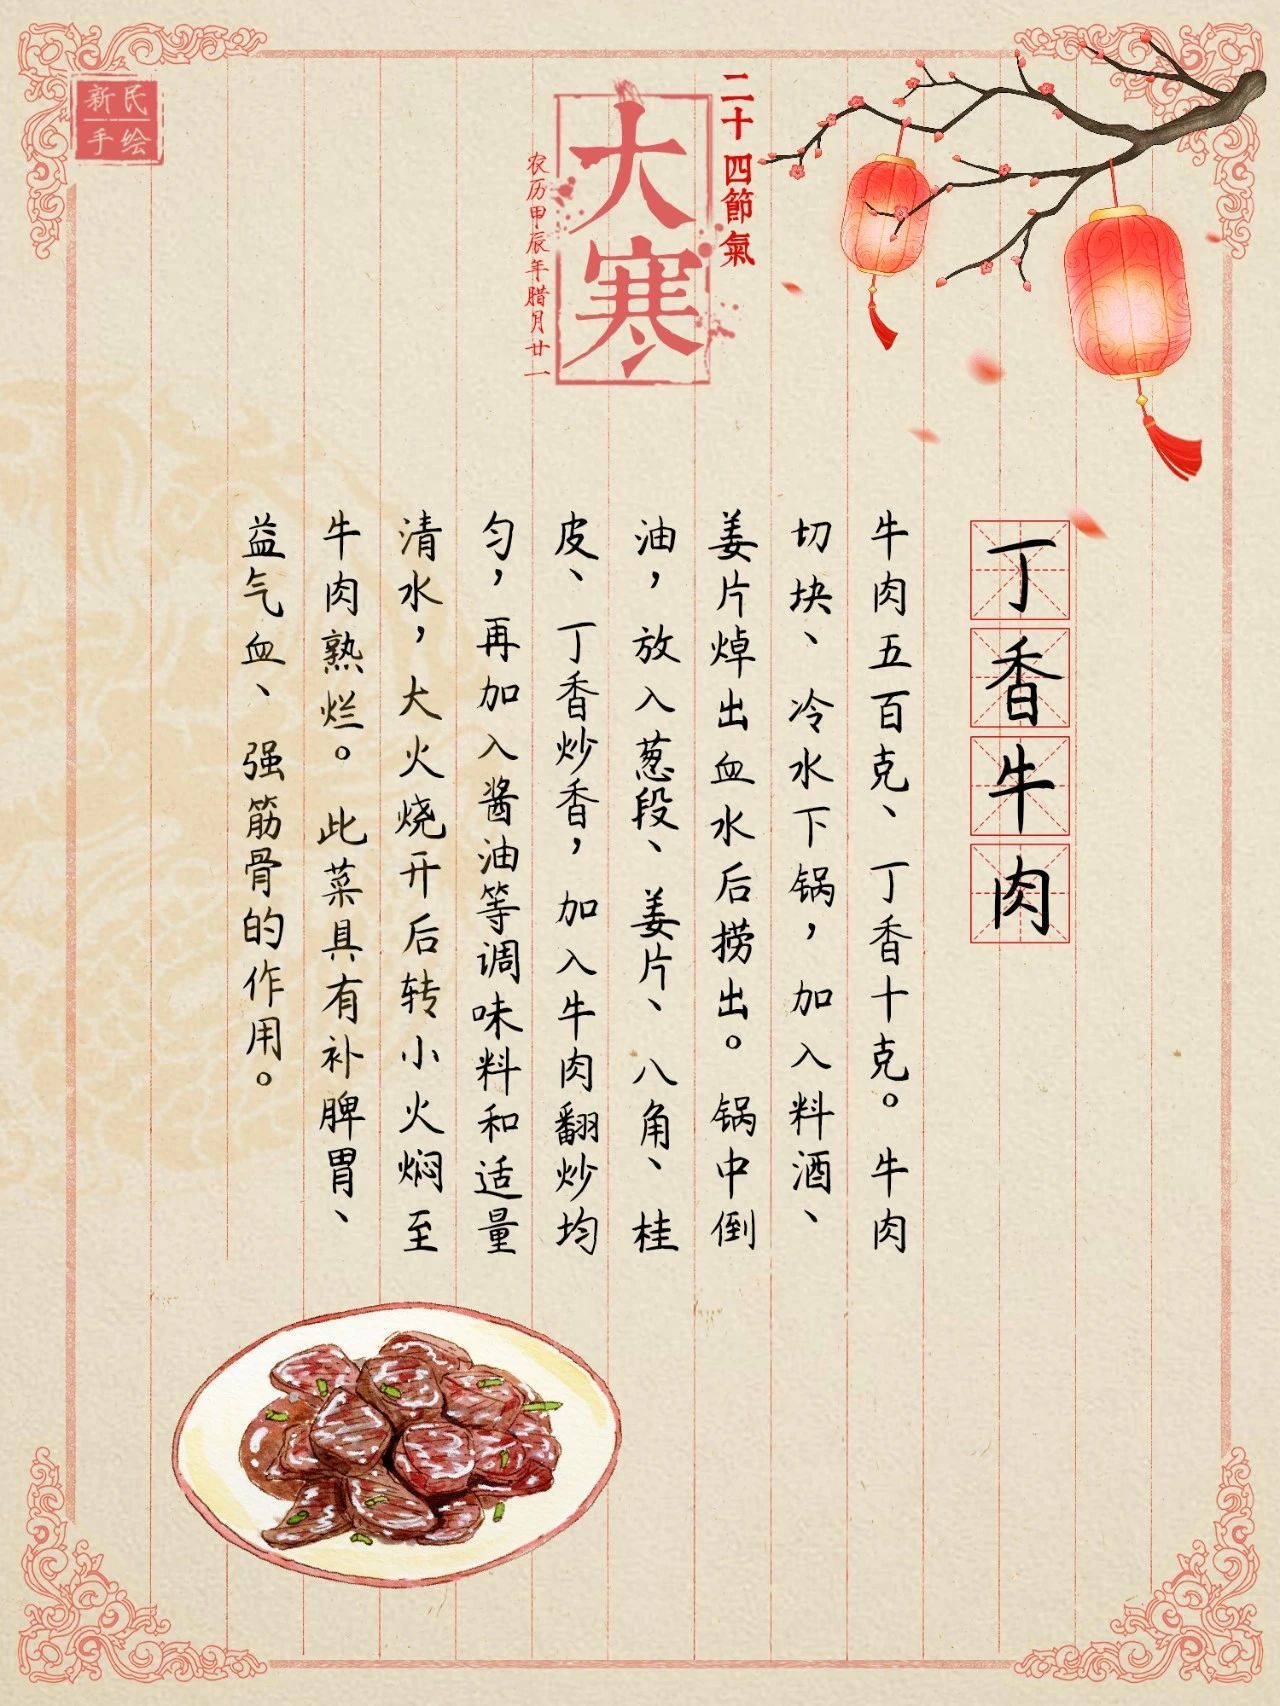 新民
手绘
二十四節氣
大寒
农历甲辰年腊月廿一
丁香牛肉
牛肉五百克、丁香十克。牛肉
切块、冷水下锅，加入料酒、
姜片焯出血水后捞出。锅中倒
油，放入葱段、姜片、八角、桂
皮、丁香炒香，加入牛肉翻炒均
匀，再加入酱油等调味料和适量
清水，大火烧开后转小火焖至
牛肉熟烂。此菜具有补脾胃、
益气血、强筋骨的作用。